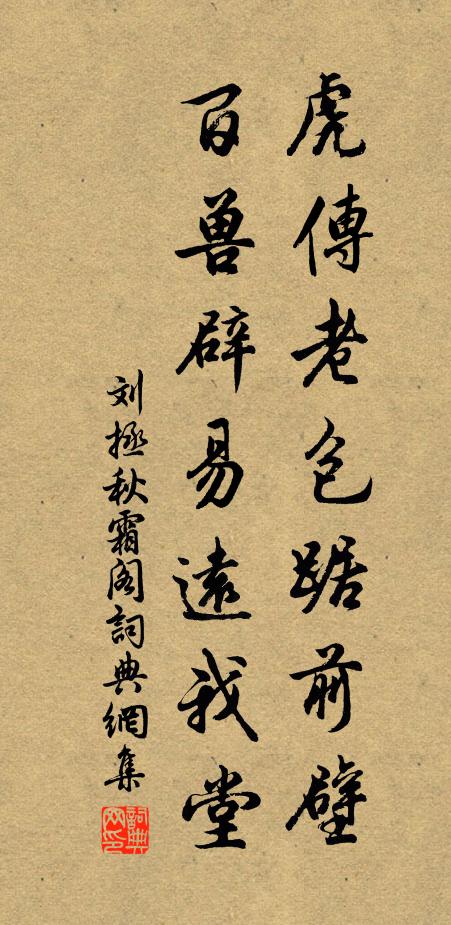 虎傳老包踞前壁
百兽辟易遠我堂
刘拯秋霜阁詞典網集
詞典网印